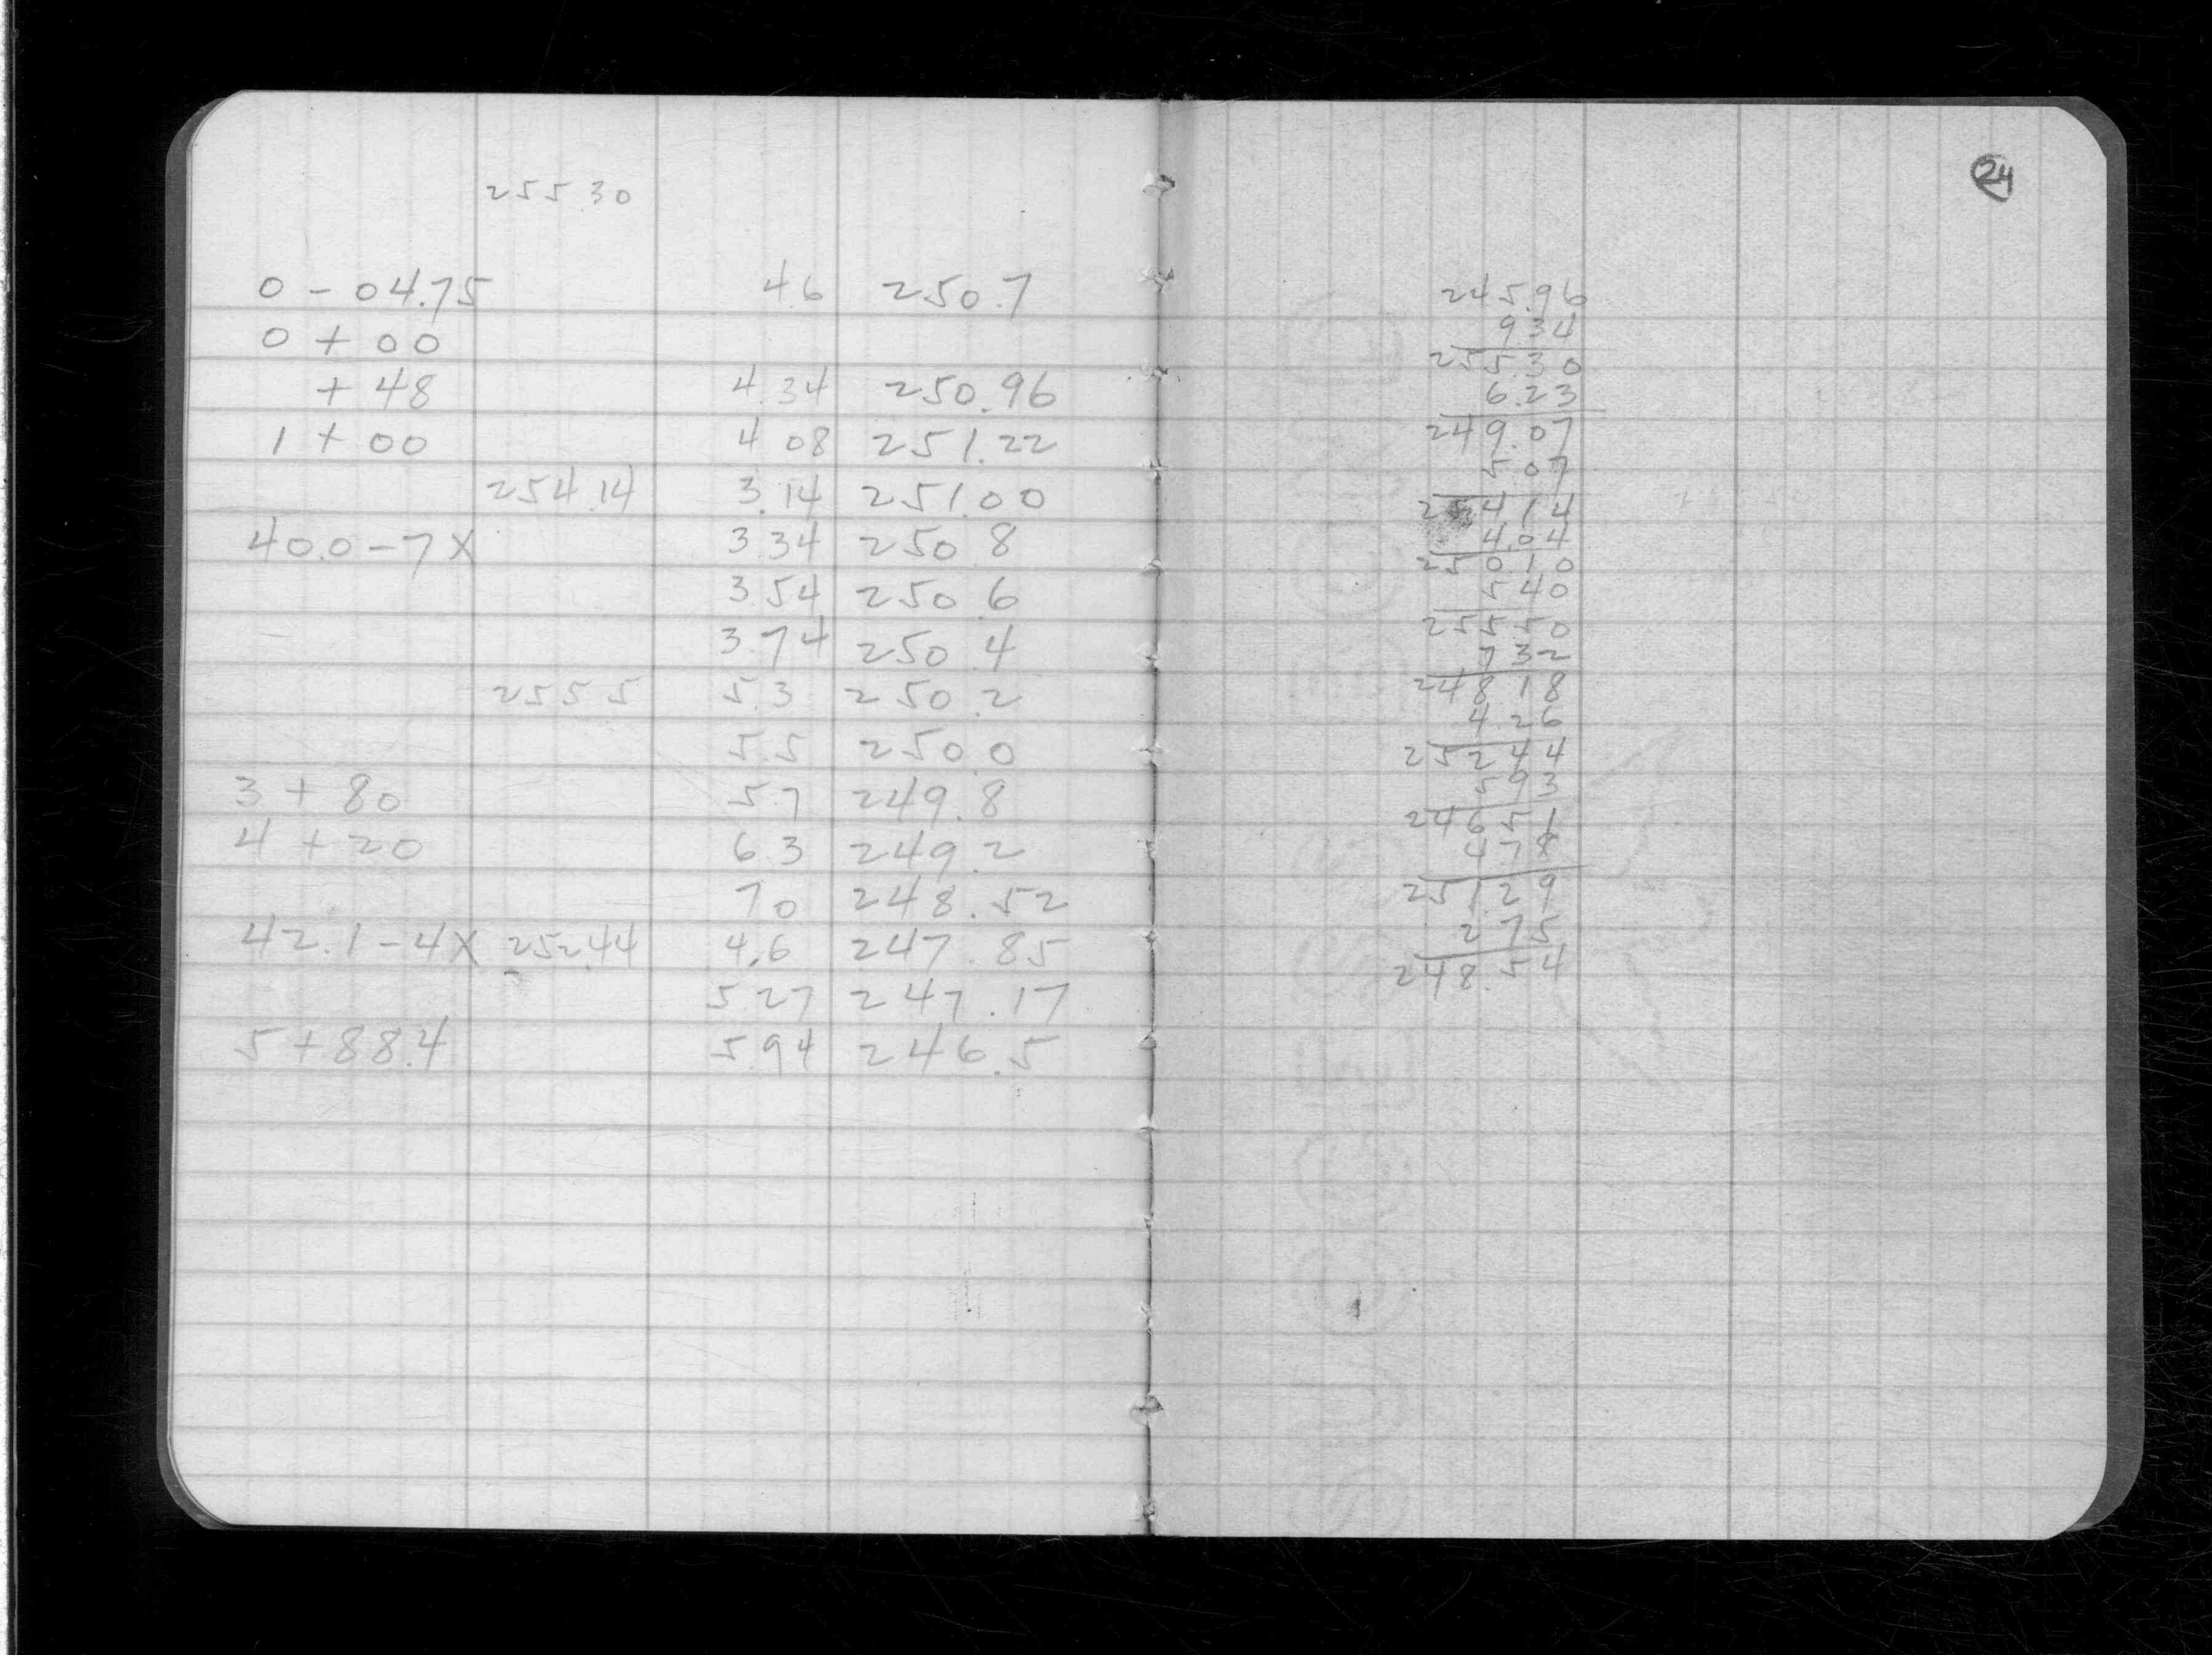 255.30
0 - 04.75 4.6 250.7
0 + 00
+ 48 4.34 250.96
1 + 00 4 08 251.22
254.14 3.14 251.00
40.0 - 7 X 3.34 250 8
3.54 250.6
3.74 250.4
255 5 5.3 250.2
5.5 250.0
3 + 80 5.7 249.8
4 + 20 6.3 249.2
7 0 248.52
42.1 - 4 X 252.44 4.6 247.85
5.27 247.17
5 + 88.4 5.94 246.5
24
245.96
9 34
255.30
6.23
249.07
5 07
254 14
4.04
250 10
5 40
255 50
7 32
248 18
4.26
252 44
5 93
246 51
4 78
251.29
2 75
248.54